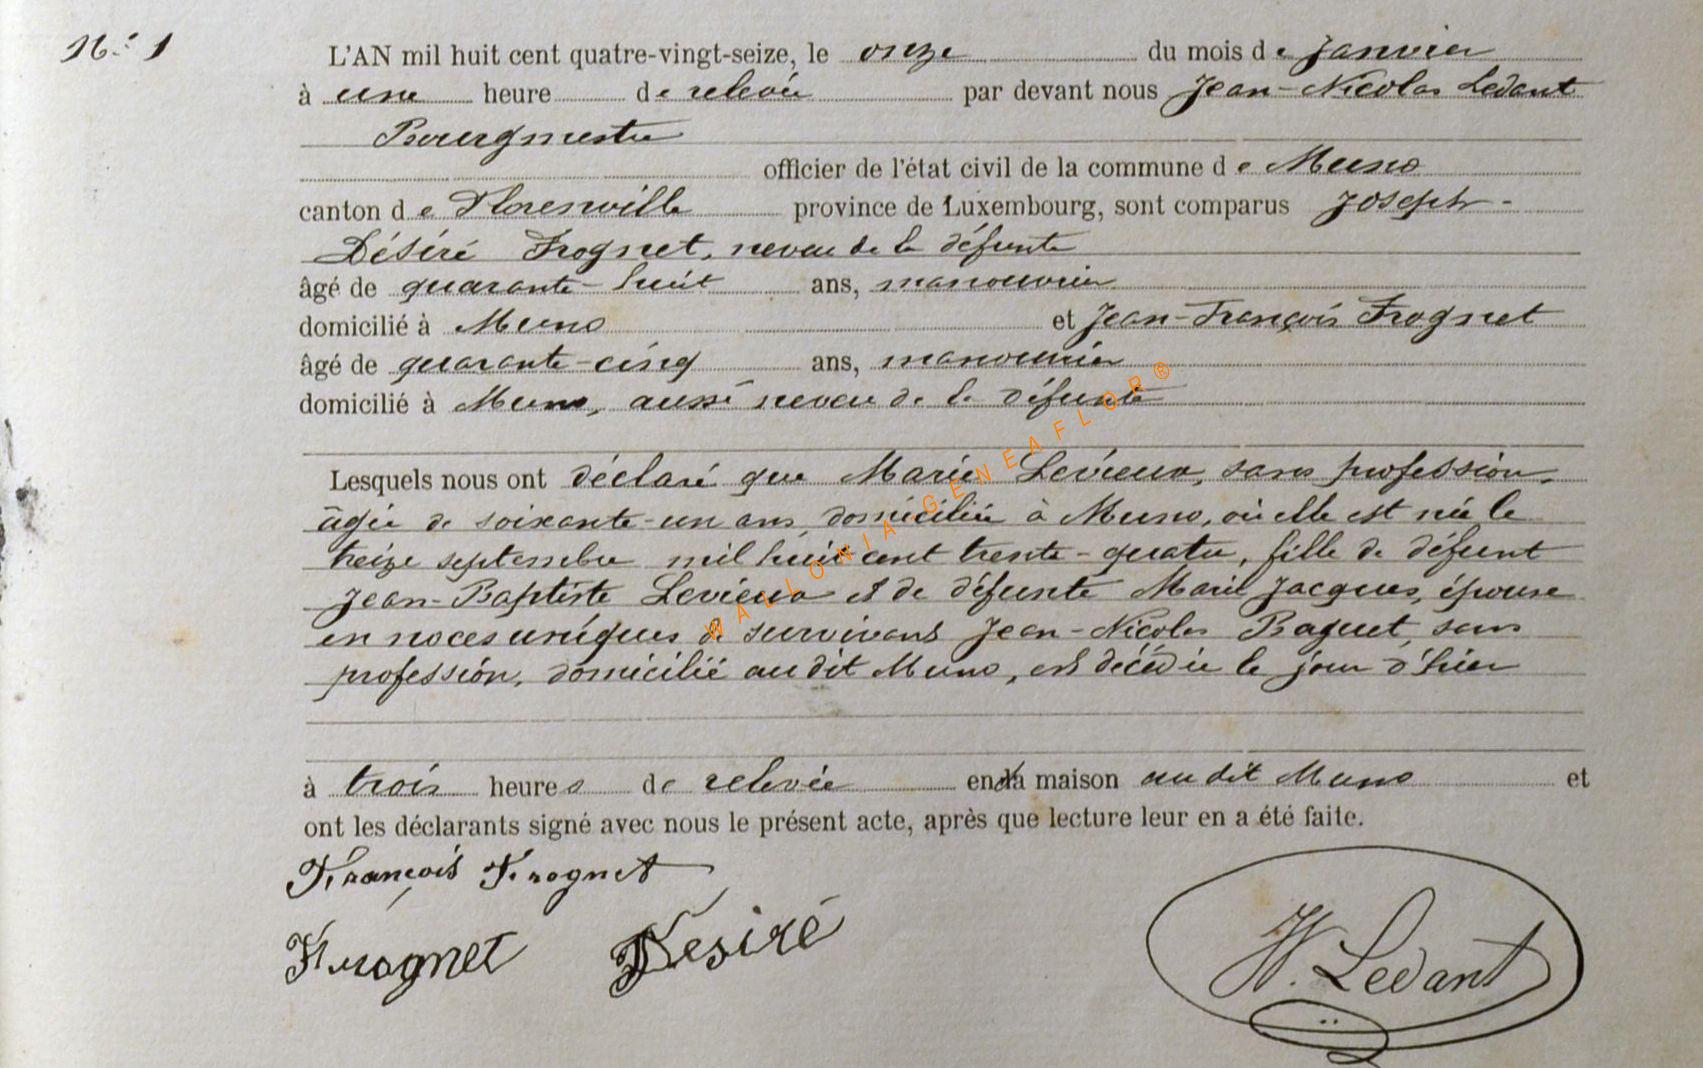 N° 1
L'AN mil huit cent quatre-vingt-seize, le onze du mois de Janvier
à une heure de relevée par devant nous Jean-Nicolas Ledant
Bourgmestre
officier de l'état civil de la commune de Muno
canton de Florenville province de Luxembourg, sont comparus Joseph-
Désiré Frognet, neveu de la défunte
âgé de quarante-huit ans, manouvrier
domicilié à Muno et Jean-François Frognet
âgé de quarante-cinq ans, manouvrier
domicilié à Muno, aussi neveu de la défunte
Lesquels nous ont déclaré que Marie Levieux, sans profession,
âgée de soixante-un ans, domiciliée à Muno, où elle est née le
treize septembre mil huit cent trente-quatre, fille de défunt
Jean-Baptiste Levieux et de défunte Marie Jacques, épouse
en noces uniques de survivant Jean-Nicolas Baquet, sans
profession, domicilié au dit Muno, est décédée le jour d'hier
à trois heures de relevée en la maison au dit Muno et
ont les déclarants signé avec nous le présent acte, après que lecture leur en a été faite.
François Frognet
Frognet Desiré
N. Ledant
WALLONIA-GENEAFLOR®